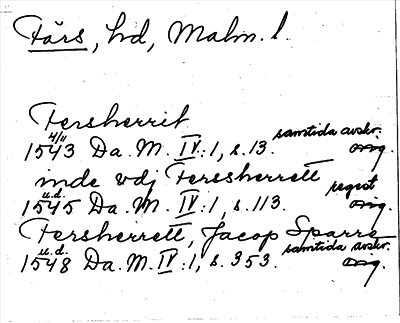 Färs, hd, Malm. l.
Fersherrit
4/11 samtida avskr.
1543 Da. M. IV:1, s. 13. orig.
inde vdj Ferssherrett regist
u.d.
1545 Da. M. IV:1, s. 113. orig.
Fersherrett, Jacop Sparre
u.d. samtida avskr.
1548 Da. M. IV:1, s. 353. orig.